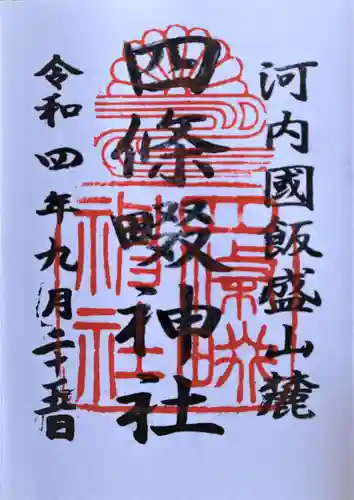 河内國飯盛山麓
四條畷神社
令和四年九月二十五日
四條畷
神社